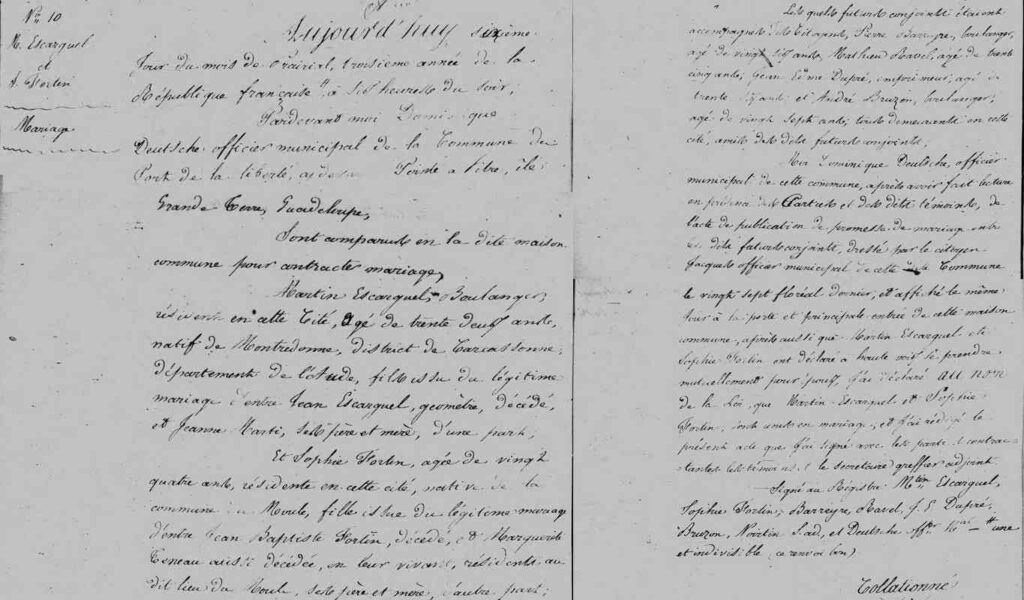 No 10
M. Escarguel
et
S. Fortin
Mariage
Aujourd'huy sixième
Jour du mois de Prairial, troisième année de la
République française, à six heures du soir,
Pardevant moi Dominique
Deutsche officier municipal de la Commune du
Port de la liberté, Pointe a Pitre, île
Grande Terre, Guadeloupe,
Sont comparus en la dite maison
commune pour contracter mariage,
Martin Escarguel, Boulanger,
résident en cette Cité, Agé de trente deux ans,
natif de Montredonne, district de Carcassonne,
département de l'Aude, fils issu du légitime
mariage d'entre Jean Escarguel, géomètre, décédé,
et Jeanne Marti, ses père et mère, d'une part;
Et Sophie Fortin, agée de vingt
quatre ans, résidente en cette cité, native de la
commune du Moule, fille issue du légitime mariage
d'entre Jean Baptiste Fortin, décédé, et Marguerite
Coneau aussi décédée, en leur vivant, résidents au
dit lieu du Moule, ses père et mère, d'autre part;
Lesquels futurs conjoints étaient
accompagnés des Citoyens, Pierre Barreyre, boulanger,
agé de vingt six ans, Mathieu Ravel, agé de trente
cinq ans, Jean Edme Dupré, imprimeur, agé de
trente six ans et André Bruzon, boulanger,
agé de vingt sept ans, tous demeurants en cette
cité, amis des dits futurs conjoints.
Moi Dominique Deutsche, officier
municipal de cette commune, après avoir fait lecture
en présence des Parties et des dits témoins, de
l'acte de publication de promesse de mariage entre
les dits futurs conjoints, dressé par le citoyen
Jacques officier municipal de cette Commune
le vingt sept floréal dernier, et affiché le même
jour à la porte et principale entrée de cette maison
commune, après aussi que Martin Escarguel et
Sophie Fortin ont déclaré à haute voix se prendre
mutuellement pour époux, j'ai déclaré au nom
de la Loi, que Martin Escarguel et Sophie
Fortin, sont unis en mariage, et j'ai rédigé le
présent acte que j'ai signé avec les parties contrac-
tantes les témoins et le secrétaire greffier adjoint.
Signé au Registre Mtin Escarguel,
Sophie Fortin, Barreyre, Ravel, J. E Dupré,
Bruzon, et Deutsche offer mal une
et indivisible (ce renvoi bon)
Collationné